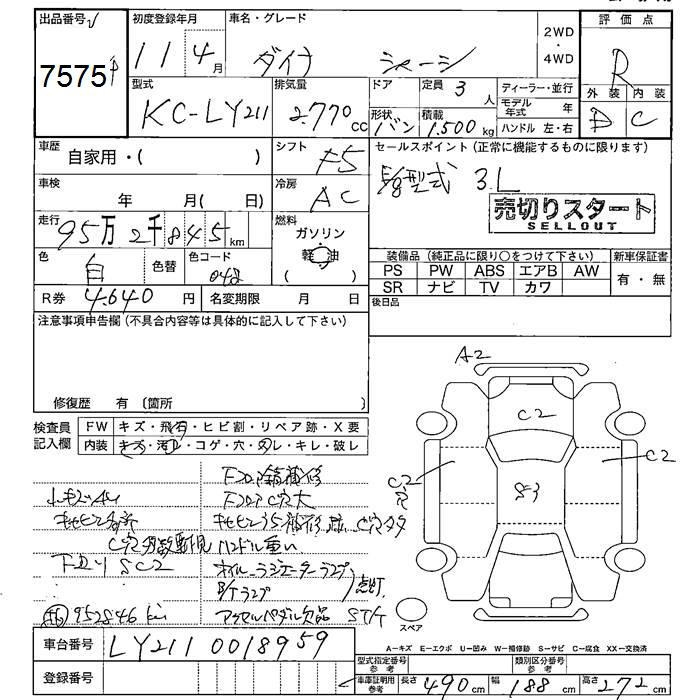 出品番号
7575
初度登録年月
11 4月
車名・グレード
ダイナ シャーシ
2WD
・
4WD
評価点
R
外装 内装
D C
型式
KC-LY211
排気量
2.770cc
ドア
定員 3人
形状 バン
積載 1.500kg
ディーラー・並行
モデル年式 年
ハンドル 左・右
車歴
自家用・( )
シフト
F5
セールスポイント(正常に機能するものに限ります)
型式 3L
売切りスタート
SELLOUT
車検
年 月( 日)
冷房
AC
走行
95万2千845km
燃料
ガソリン
軽油
( )
色
白
色替
色コード
048
装備品(純正品に限り○をつけて下さい)
新車保証書
PS PW ABS エアB AW
有・無
SR ナビ TV カワ
R券 4.640円
名変期限 月 日
後日品
注意事項申告欄(不具合内容等は具体的に記入して下さい)
修復歴 有 〔箇所 〕
検査員記入欄
FW キズ・飛石・ヒビ割・リペア跡・X要
内装 キズ・汚レ・コゲ・穴・スレ・キレ・破レ
A2
C2
C2
穴
C2
S3
フロア錆補修
フロアC穴大
C穴多数
ハンドル重い
下廻りSC2
オイル ラジエーターランプ
B/Tランプ
点灯
952846km
アクセルペダル欠品 ST/T
スペア
車台番号
LY211 0018959
登録番号
A─キズ E─エクボ U─凹み W─補修跡 S─サビ C─腐食 XX─交換済
型式指定番号 参考
類別区分番号 参考
車庫証明用参考
長さ 490cm 幅 188cm 高さ 272cm